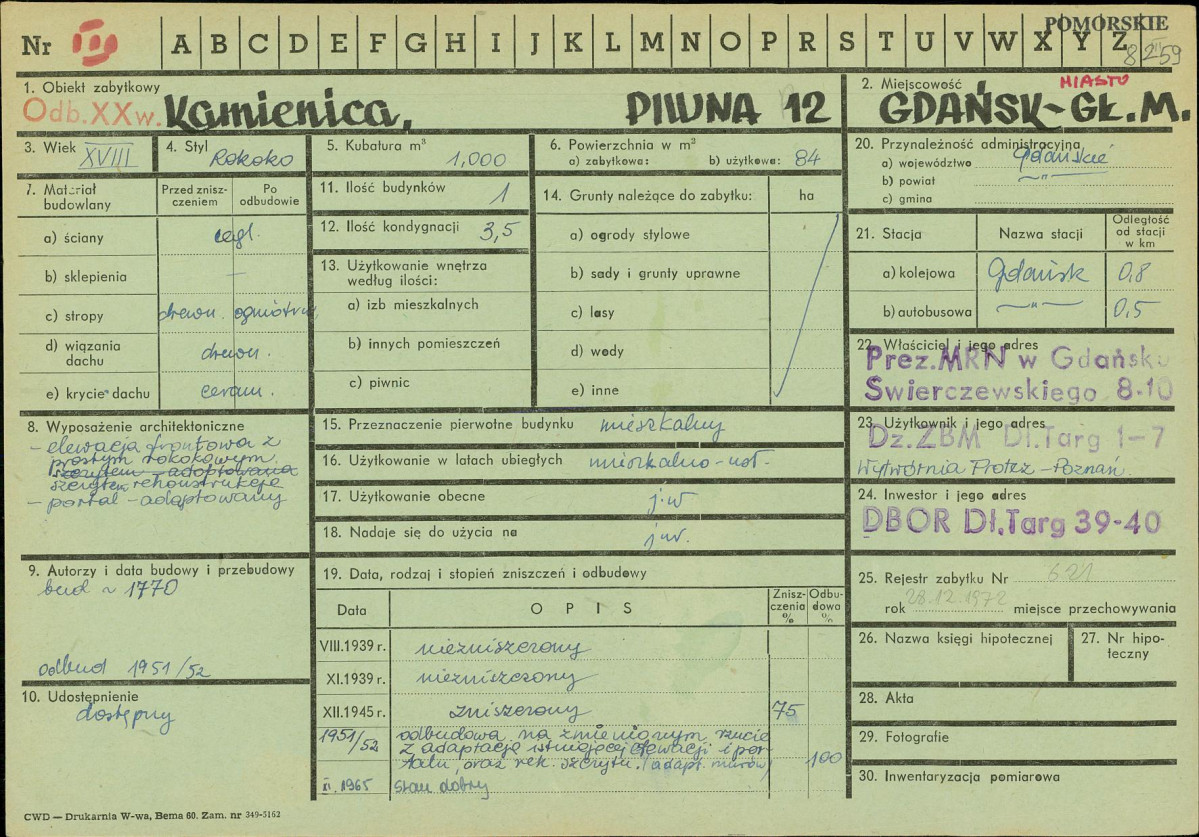 POMORSKIE
Nr III A B C D E F G H I J K L M N O P R S T U V W X Y Z
8259
1. Obiekt zabytkowy
Odb. XX w. Kamienica, PIWNA 12
2. Miejscowość MIASTO
GDAŃSK-GŁ.M.
3. Wiek XVIII
4. Styl Rokoko
5. Kubatura m³ 1,000
6. Powierzchnia w m²
a) zabytkowa: b) użytkowa: 84
7. Materiał budowlany
Przed zniszczeniem
Po odbudowie
a) ściany cegl.
b) sklepienia —
c) stropy drewn. ogniotrw.
d) wiązania dachu drewn.
e) krycie dachu ceram.
8. Wyposażenie architektoniczne
- elewacja frontowa z
prostym rokokowym
szczytem - adaptowana
szczytem rekonstrukcja
- portal - adaptowany
9. Autorzy i data budowy i przebudowy
bud ~ 1770
odbud 1951/52
10. Udostępnienie
dostępny
11. Ilość budynków 1
12. Ilość kondygnacji 3,5
13. Użytkowanie wnętrza
według ilości:
a) izb mieszkalnych
b) innych pomieszczeń
c) piwnic
14. Grunty należące do zabytku: ha
a) ogrody stylowe
b) sady i grunty uprawne
c) lasy
d) wody
e) inne
15. Przeznaczenie pierwotne budynku mieszkalny
16. Użytkowanie w latach ubiegłych mieszkalno-usł.
17. Użytkowanie obecne j.w
18. Nadaje się do użycia na j.w.
19. Data, rodzaj i stopień zniszczeń i odbudowy
Data
OPIS
Zniszczenia %
Odbudowa %
VIII.1939 r. niezniszczony
XI.1939 r. niezniszczony
XII.1945 r. zniszczony 75
1951/52 odbudowa na zmienionym rzucie
z adaptacją istniejącej elewacji i por-
talu, oraz rek. szczytu. (adapt. murów) 100
XI. 1965 stan dobry
20. Przynależność administracyjna
a) województwo gdańskie
b) powiat —"—
c) gmina
21. Stacja
Nazwa stacji
Odległość od stacji w km
a) kolejowa Gdańsk 0,8
b) autobusowa —"— 0,5
22. Właściciel i jego adres
Prez. MRN w Gdańsku
Swierczewskiego 8-10
23. Użytkownik i jego adres
Dz. ZBM Dl. Targ 1-7
Wytwórnia Protez - Poznań.
24. Inwestor i jego adres
DBOR Dł. Targ 39-40
25. Rejestr zabytku Nr 621
rok 28.12.1972 miejsce przechowywania
26. Nazwa księgi hipotecznej
27. Nr hipo-
teczny
28. Akta
29. Fotografie
30. Inwentaryzacja pomiarowa
CWD — Drukarnia W-wa, Bema 60. Zam. nr 349-5162